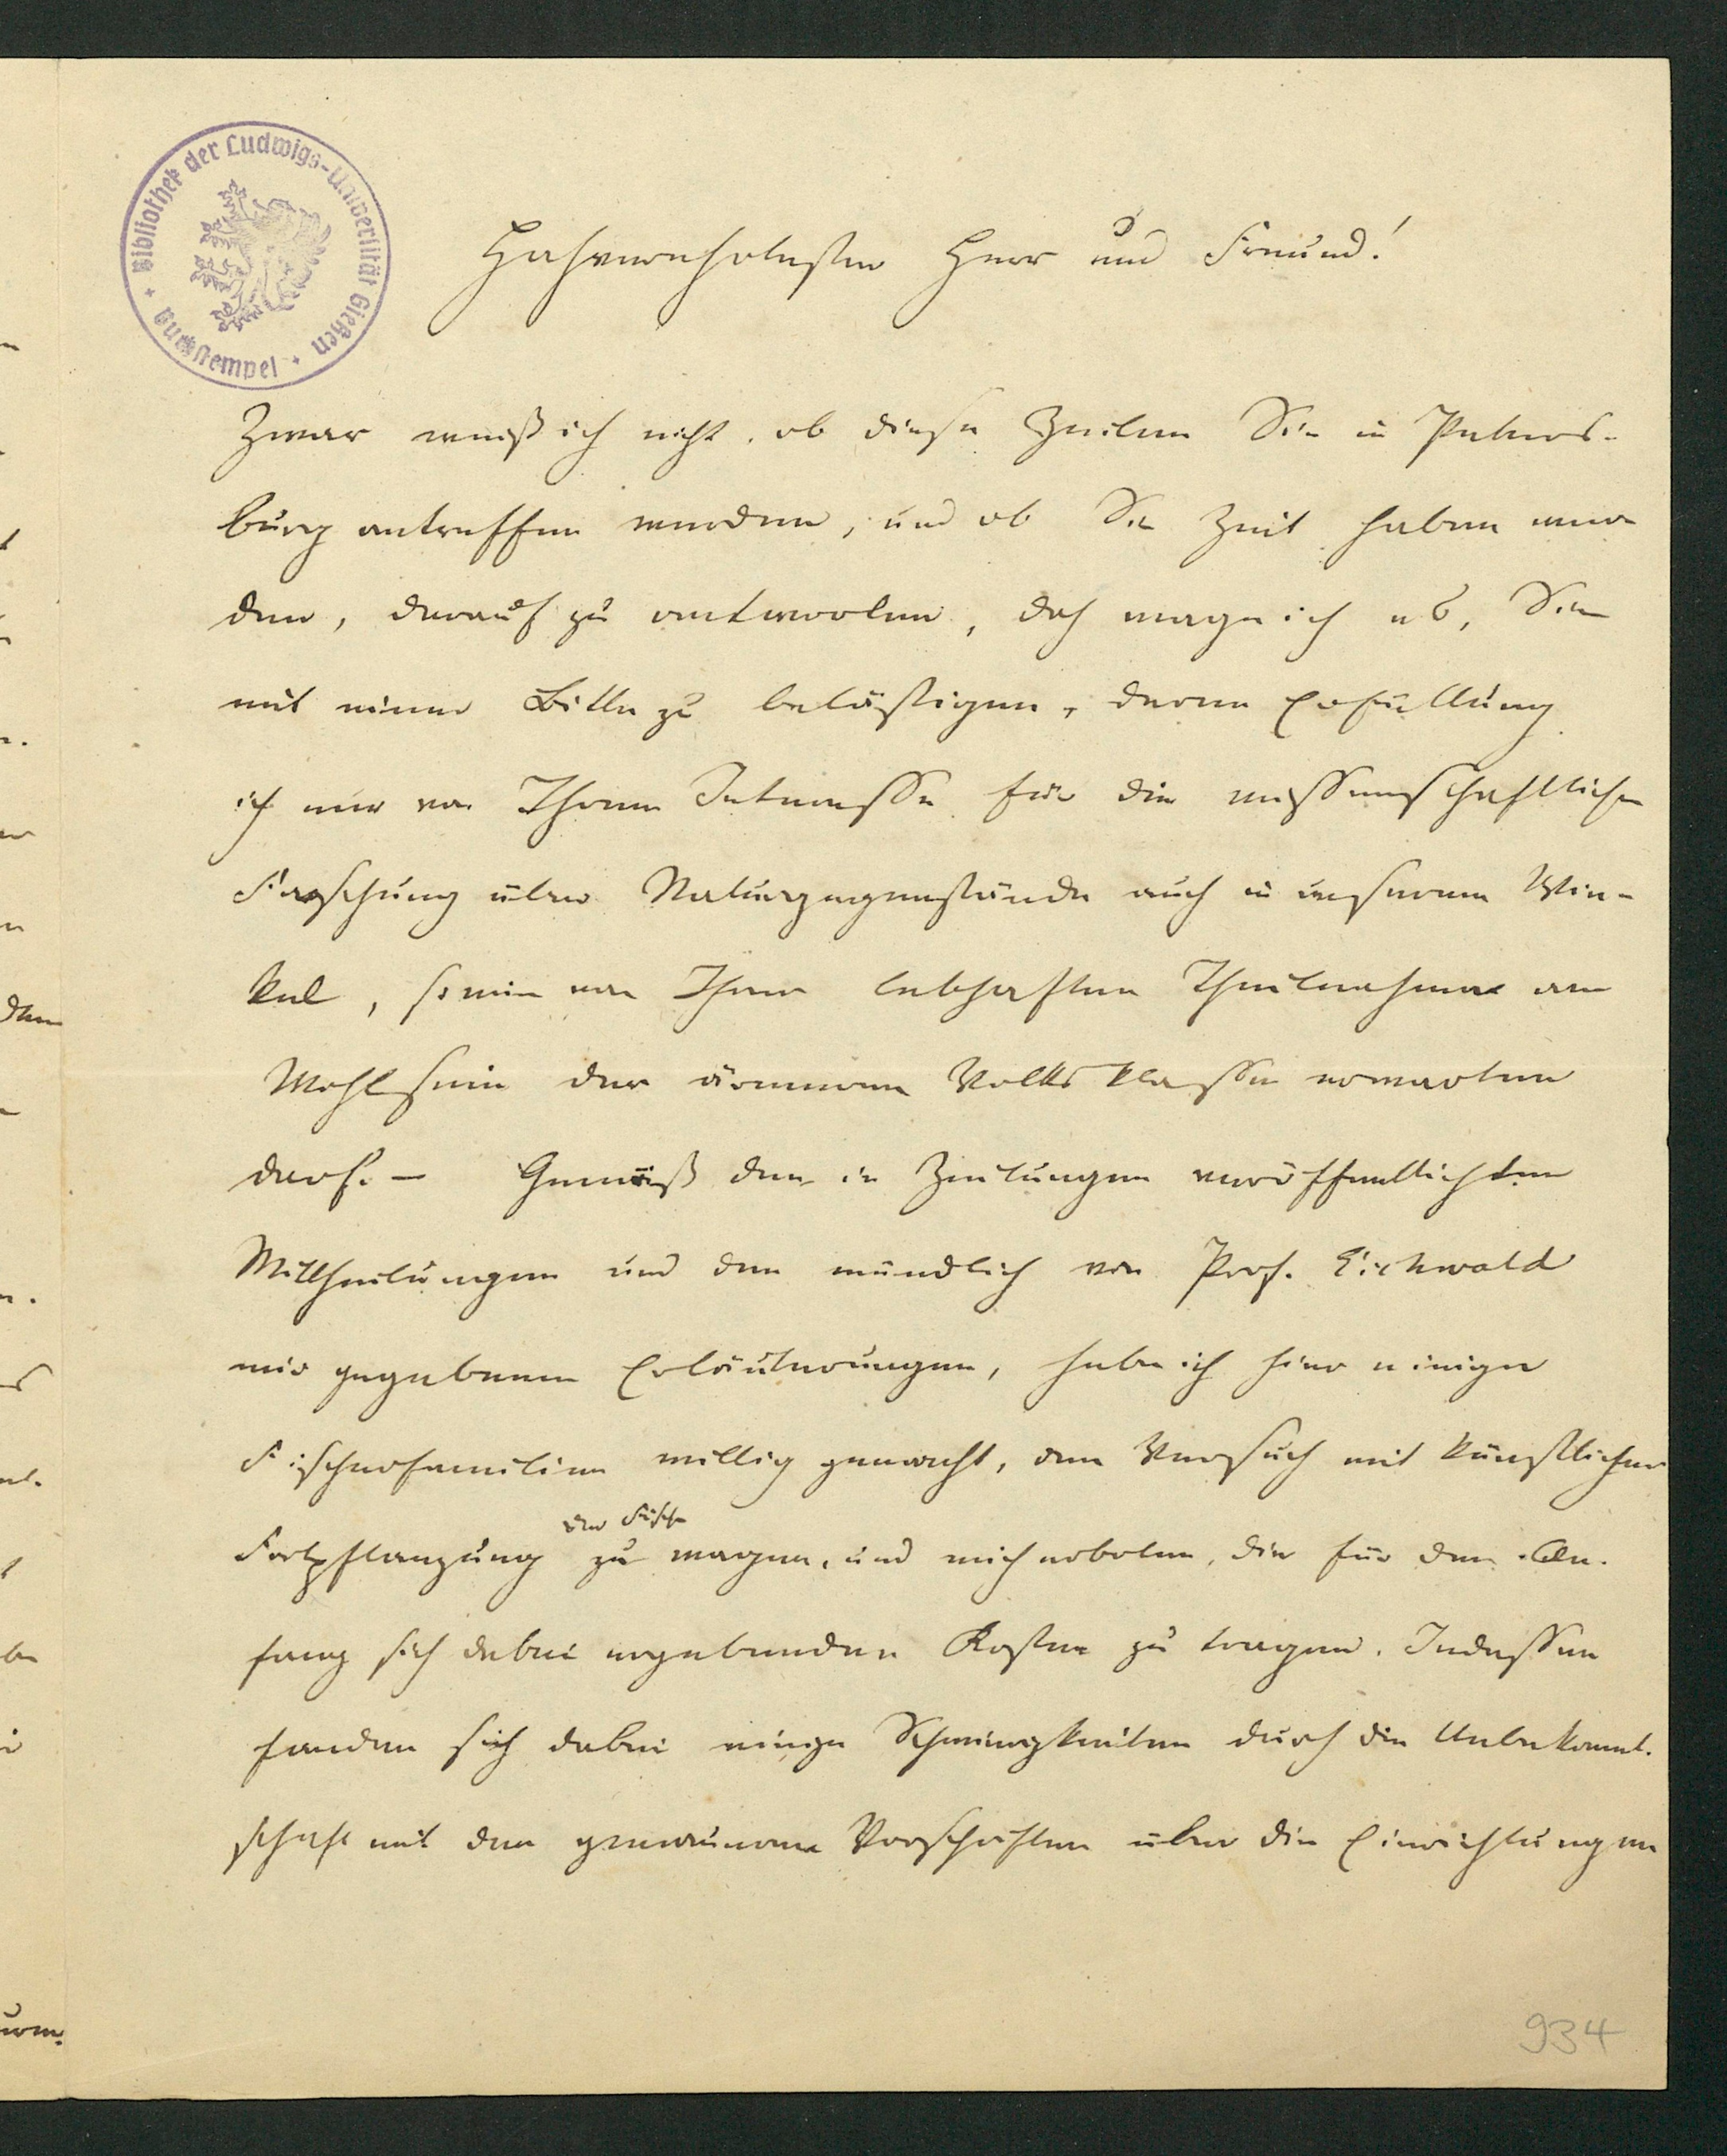 Bibliothek der Ludwigs-Universität Gießen
Buchstempel
Hochverehrtester Herr und Freund!
Zwar weiß ich nicht, ob diese Zeilen Sie in Peters-
burg antreffen werden, und ob Sie Zeit haben wer
den, darauf zu antworten, doch wage ich es, Sie
mit einer Bitte zu belästigen, deren Erfüllung
ich nur von Ihrem Interesse für die wissenschaftliche
Forschung über Naturgegenstände auch in unserem Win-
kel, sowie von Ihrer lebhaften Theilnahme am
Wohlsein der ärmeren Volksklasse erwarten
darf. — Gemäß den in Zeitungen veröffentlichten
Mittheilungen und den mündlich von Prof. Eichwald
mir gegebenen Erläuterungen, habe ich hier einige
Fischerfamilien willig gemacht, den Versuch mit künstlicher
der Fische
Fortpflanzung zu wagen, und mich erboten, die für den An-
fang sich dabei ergebenden Kosten zu tragen. Indessen
fanden sich dabei einige Schwierigkeiten durch die Unbekannt-
schaft mit den genaueren Vorschriften über die Einrichtungen
934